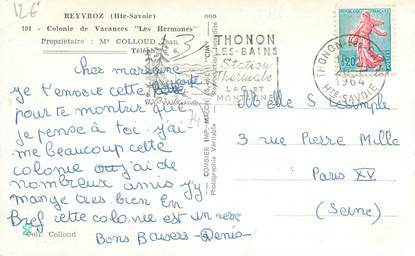 12€
REYVROZ (Hte-Savoie)
101 - Colonie de Vacances "Les Hermones"
Propriétaire : M. COLLOUD Jean
Téléph. 6.
Cher marraine
je t'envoie cette carte
pour te montrer que
je pense à toi. j'ai
me beaucoup cette
colonie ou j'ai de
nombreux amis j'y
mange tres bien En
Bref cette colonie est un reve
Bons Baisers - Denis -
Coll. Colloud
COMBIER IMP. MACON "CIM"
Photographie Véritable
THONON
LES-BAINS
Station
Thermale
LAC ET
MONTAGNE
THONON-LES-
1964
HTE-SAVOIE
Melle S
3 rue Pierre Mille
Paris XV
(Seine)